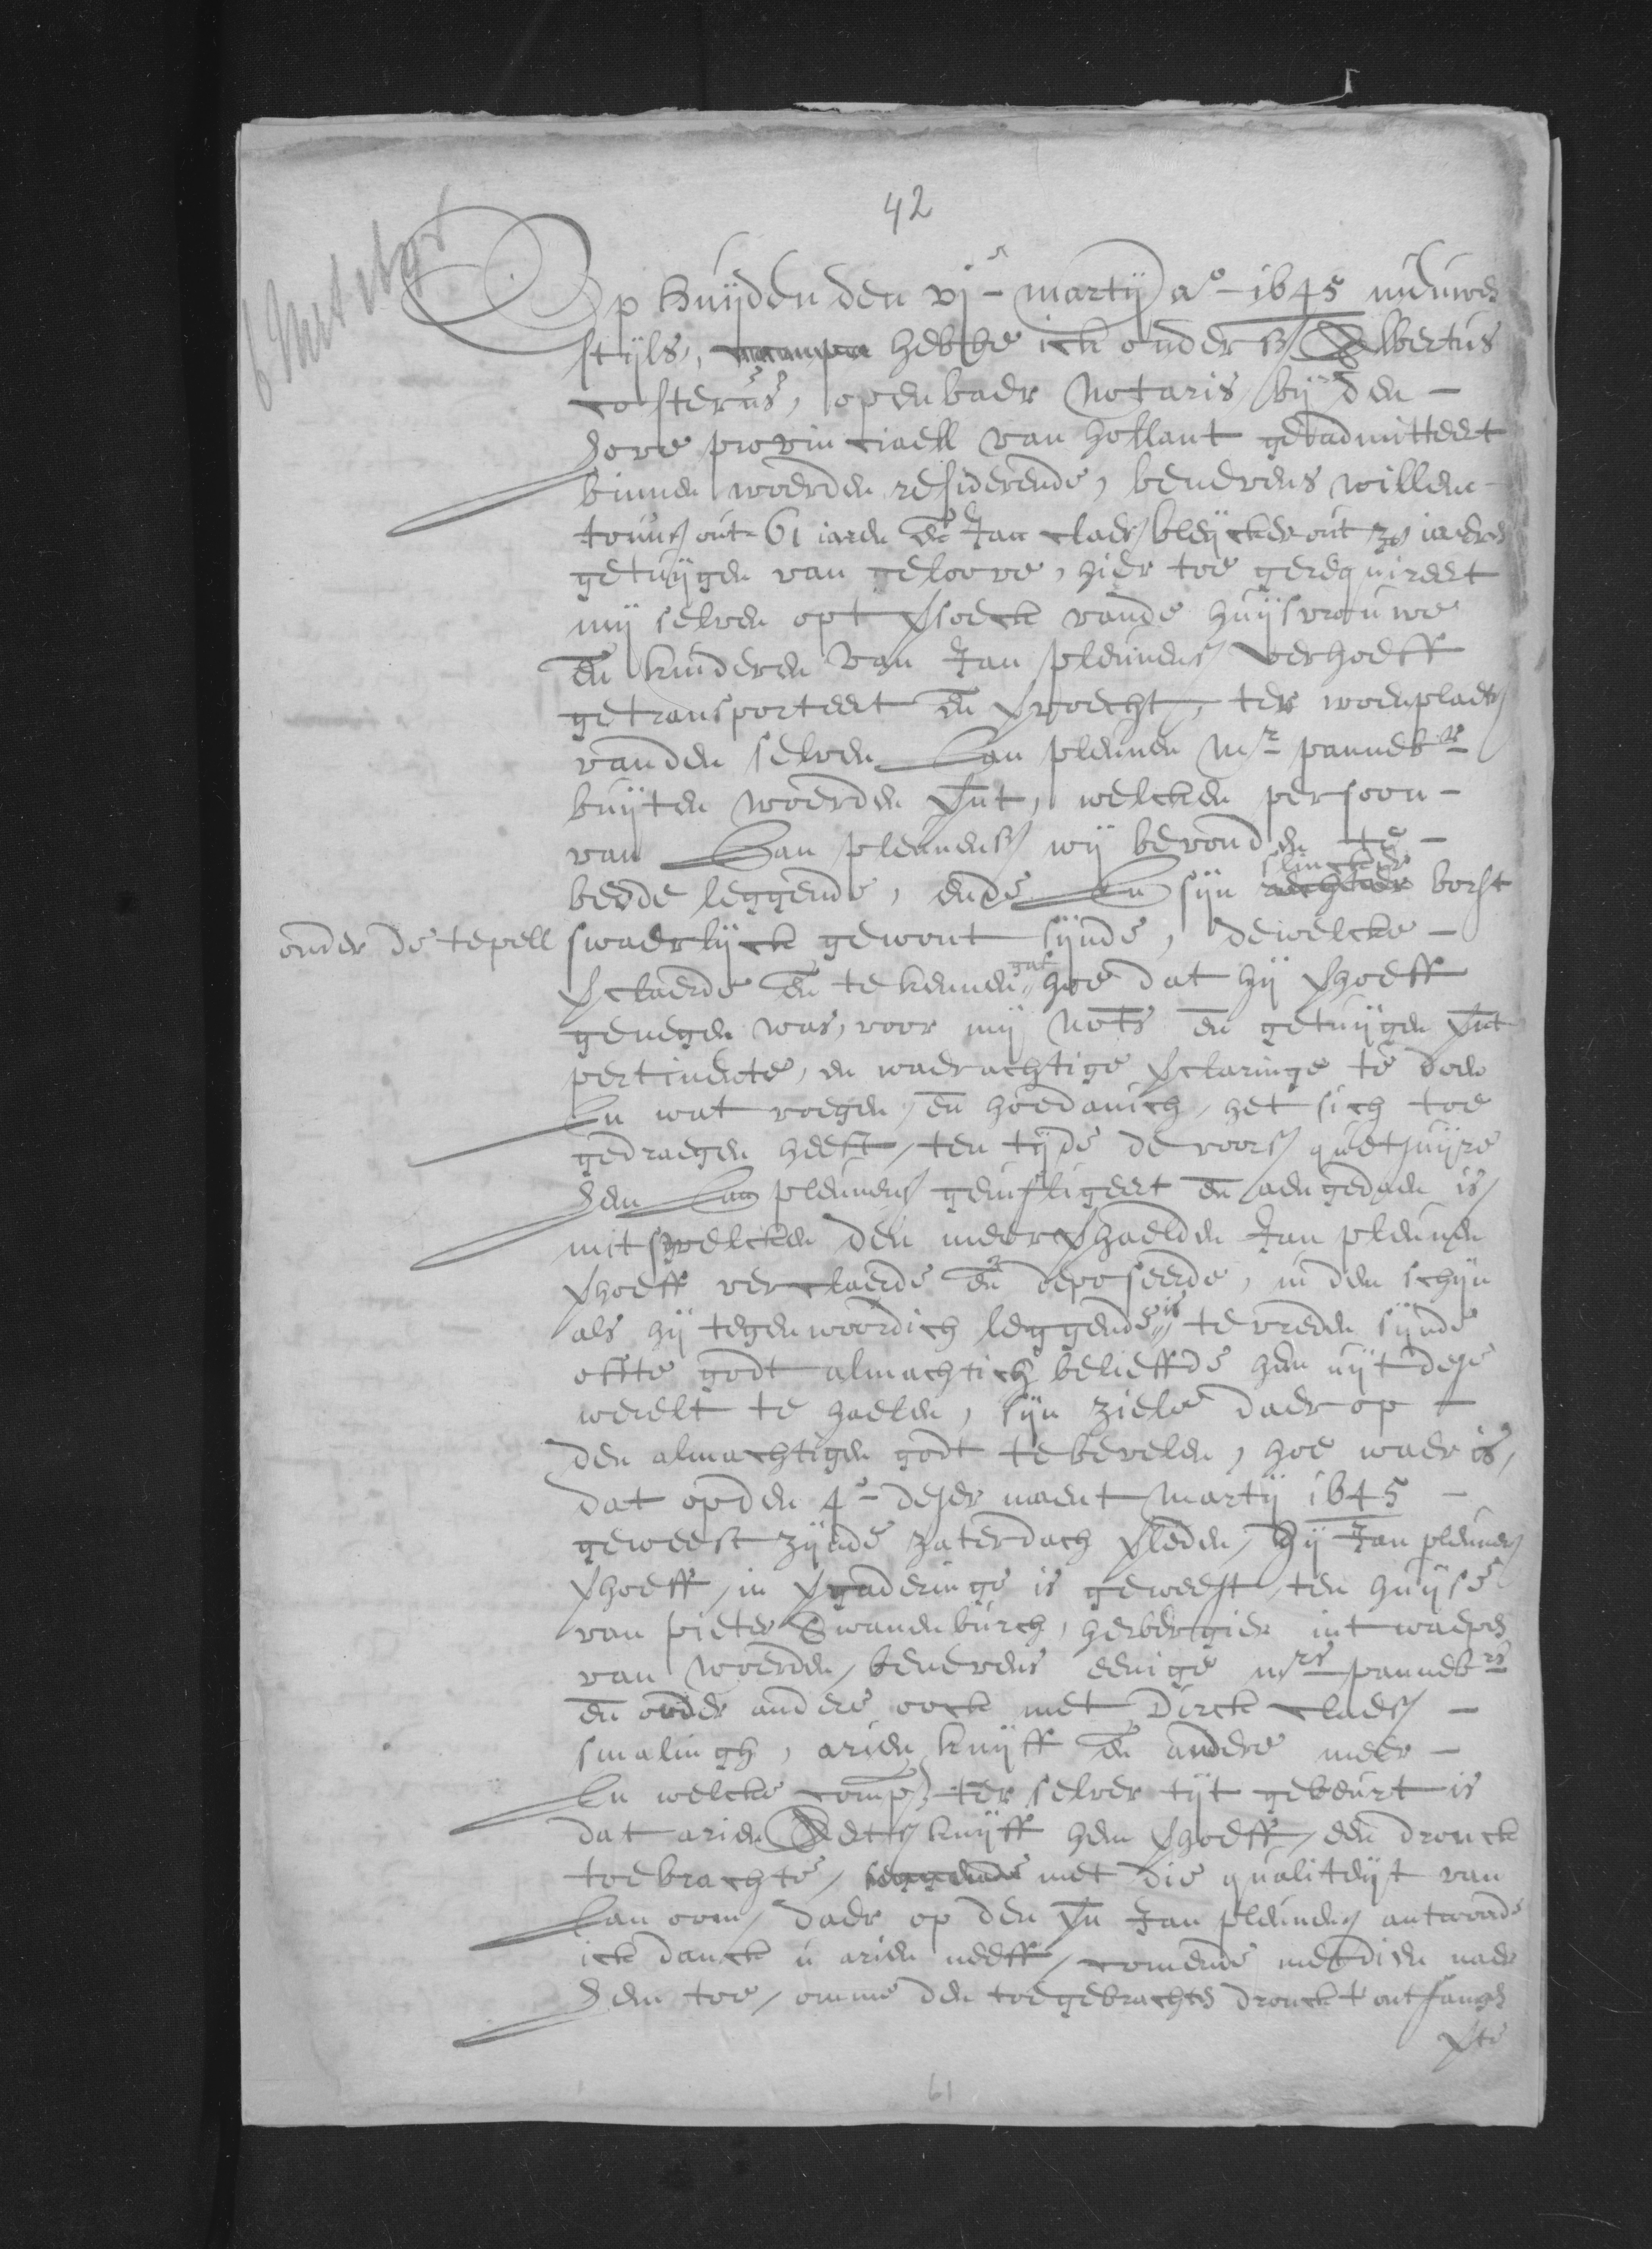 42
Op huijden den vj - martij ao - 1645 nieuwen
stijls, hebbe ick onders Albertus
costerus, openbaer Notaris bij den -
hove provinciaell van hollant geadmitteert
binnen woerden residerende, benevens willem
out 61 iaren en Jan claes bleijcker out iaeren
getuijgen van geloove, hier toe gerequireert
mij selven opt vsoeck vande huijsvrouwe
en kinderen van Jan pleunens verhoeff
getransporteert en vvoecht, ter woenplaets
vanden selven Jan pleunen mr panneb
buijten woerden vnt, welcken persoon -
van Jan pleunens wij bevonden te -
bedde leggende, ende In sijn slincker rechter borst
onder de tepell swaerlijck gewont sijnde, dewelcke -
vclaerde en te kennen gaf hoe dat hij vhoeff
genegen was, voor mij nots en getuijgen vnt
pertinente, en waerachtige vclaringe te doen
In wat voegen, en hoedanich, het sich toe
gedraegen heeft, ten tijde de voors quetsuijre
hem Jan pleunens geinfligeert en aengedaen is,
mits welcken den meervhaelden Jan pleunen
vhoeff verclaerde en deposeerde, in den schijn
als hij tegenwoordich leggende is te vreden sijnde
ofte godt almachtich belieffde hem uijt dese
werelt te haelen, sijn ziele daer op -
den almachtigen godt te bevelen, hoe waer is,
dat op den 4e - deser maent martij 1645 -
geweest zijnde zaterdach vleden, hij Jan pleunens
vhoeff, in vgaderinge is geweest, ten huijse
van pieter Swanenburch, herbergier int waepen
van woerden, benevens eenige mrs pannebrs
en onder andere oock met Dirck claes -
smalingh, arien knijff en andere meer -
In welcke comp. ter selver tijt gebeurt is
dat arien knijff hem vhoeff, een dronck
toebrachte, seggende met die qualiteijt van
Jan oom, daer op den vn Jan pleunens antwoorde
ick danck u arien neeff, comende met dien naer
hem toe, omme den toegebrachten dronck t ontfangen
vte
61